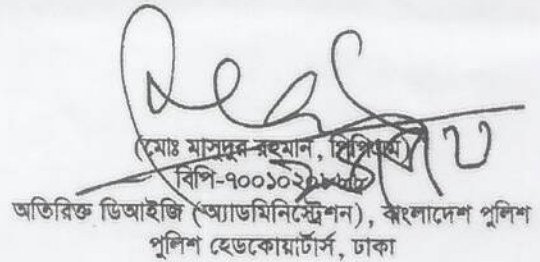 (মোঃ মাসুদুর রহমান, পিপিএম)
বিপি-৭০০১০২
অতিরিক্ত ডিআইজি (অ্যাডমিনিস্ট্রেশন), বাংলাদেশ পুলিশ
পুলিশ হেডকোয়ার্টার্স, ঢাকা